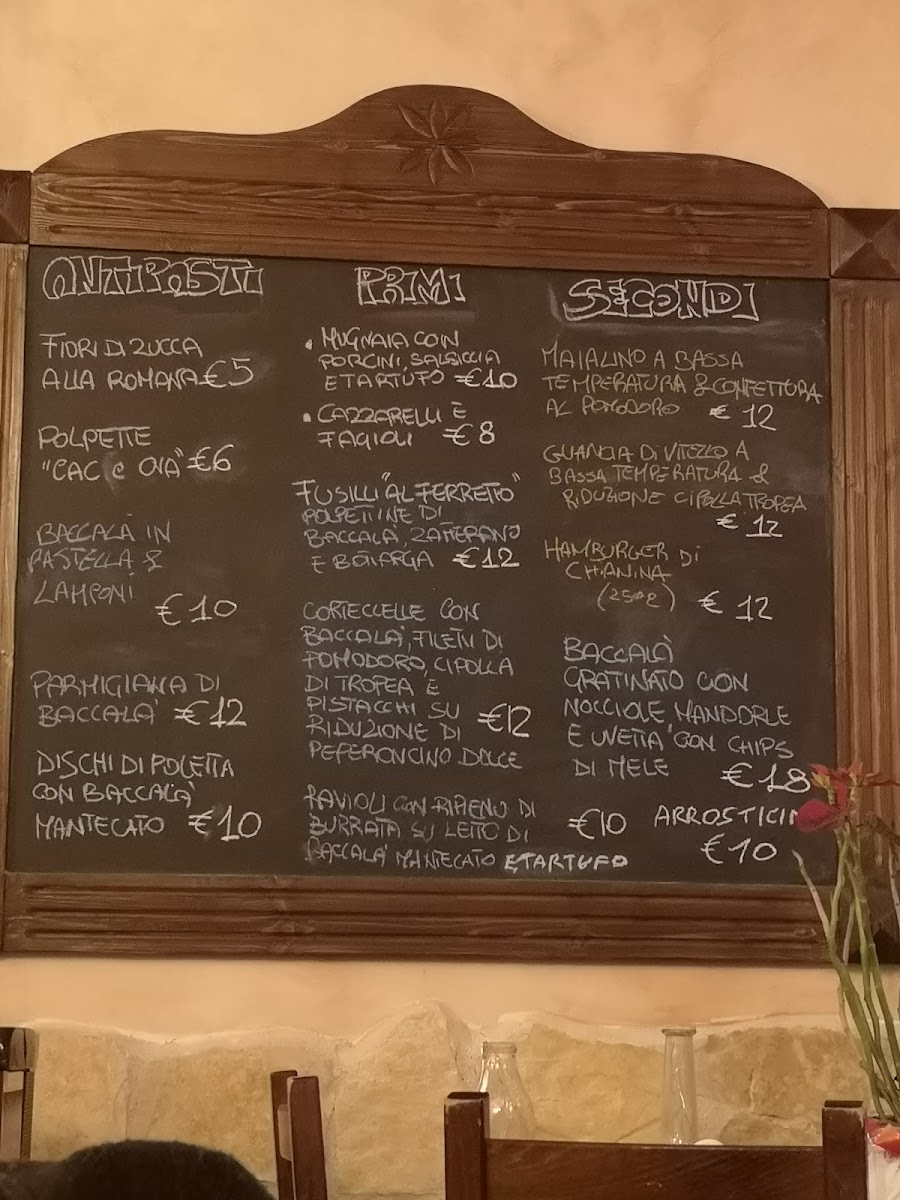 ANTIPASTI
FIORI DI ZUCCA
ALLA ROMANA €5
POLPETTE
"CAC e OVA" €6
BACCALÀ IN
PASTELLA &
LAMPONI
€10
PARMIGIANA DI
BACCALA' €12
DISCHI DI POLETTA
CON BACCALA'
MANTECATO €10
PRIMI
• MUGNAIA CON
PORCINI, SALSICCIA
E TARTUFO €10
• CAZZARELLI E
FAGIOLI €8
FUSILLI "AL FERRETTO"
POLPETTINE DI
BACCALÀ, ZAFFERANO
E BOTTARGA €12
CORTECCELLE CON
BACCALA', FILETTI DI
POMODORO, CIPOLLA
DI TROPEA E
PISTACCHI SU €12
RIDUZIONE DI
PEPERONCINO DOLCE
RAVIOLI CON RIPIENO DI
BURRATA SU LETTO DI €10
BACCALA' MANTECATO E TARTUFO
SECONDI
MAIALINO A BASSA
TEMPERATURA & CONFETTURA
AL POMODORO € 12
GUANCIA DI VITELLO A
BASSA TEMPERATURA &
RIDUZIONE CIPOLLA TROPEA
€ 12
HAMBURGER DI
CHIANINA
(250g) € 12
BACCALÀ
GRATINATO CON
NOCCIOLE, MANDORLE
E UVETTA CON CHIPS
DI MELE €18
ARROSTICIN
€10